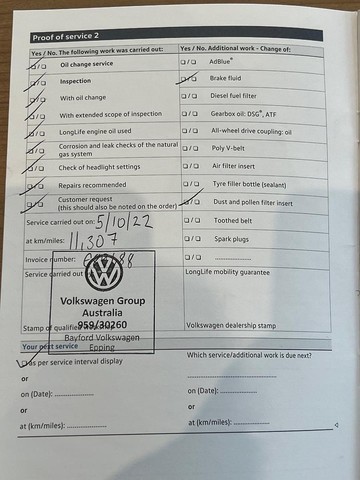 Proof of service 2
Yes / No. The following work was carried out:
Yes / No. Additional work - Change of:
❑ / ❑ Oil change service
❑ / ❑ AdBlue®
❑ / ❑ Inspection
❑ / ❑ Brake fluid
❑ / ❑ With oil change
❑ / ❑ Diesel fuel filter
❑ / ❑ With extended scope of inspection
❑ / ❑ Gearbox oil: DSG®, ATF
❑ / ❑ LongLife engine oil used
❑ / ❑ All-wheel drive coupling: oil
❑ / ❑ Corrosion and leak checks of the natural
gas system
❑ / ❑ Poly V-belt
❑ / ❑ Check of headlight settings
❑ / ❑ Air filter insert
❑ / ❑ Repairs recommended
❑ / ❑ Tyre filler bottle (sealant)
❑ / ❑ Customer request
(this should also be noted on the order)
❑ / ❑ Dust and pollen filter insert
Service carried out on: 5/10/22
❑ / ❑ Toothed belt
at km/miles: 11,307
❑ / ❑ Spark plugs
Invoice number:
❑ / ❑ ....................
Service carried out
LongLife mobility guarantee
Volkswagen Group
Australia
959/30260
Stamp of qualified
Bayford Volkswagen
Epping
Volkswagen dealership stamp
Your next service
❑ as per service interval display
Which service/additional work is due next?
or
on (Date): ....................
or
at (km/miles): ....................
or
on (Date): ....................
or
at (km/miles): ....................